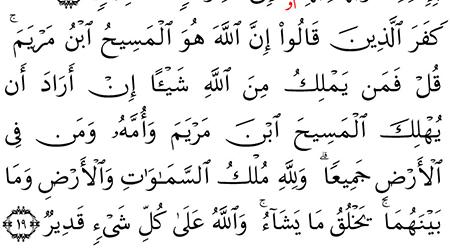 أو
كَفَرَ ٱلَّذِينَ قَالُواْ إِنَّ ٱللَّهَ هُوَ ٱلْمَسِيحُ ٱبْنُ مَرْيَمَ ۚ
قُلْ فَمَن يَمْلِكُ مِنَ ٱللَّهِ شَيْـًٔا إِنْ أَرَادَ أَن
يُهْلِكَ ٱلْمَسِيحَ ٱبْنَ مَرْيَمَ وَأُمَّهُۥ وَمَن فِى
ٱلْأَرْضِ جَمِيعًا ۗ وَلِلَّهِ مُلْكُ ٱلسَّمَـٰوَٰتِ وَٱلْأَرْضِ وَمَا
بَيْنَهُمَا ۚ يَخْلُقُ مَا يَشَآءُ ۚ وَٱللَّهُ عَلَىٰ كُلِّ شَىْءٍ قَدِيرٌ ١٩